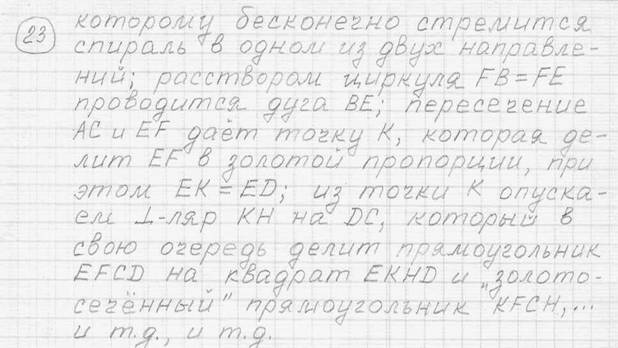 23 которому бесконечно стремится
спираль в одном из двух направле-
ний; расствором циркуля FB=FE
проводится дуга BE; пересечение
AC и EF даёт точку K, которая де-
лит EF в золотой пропорции, при
этом EK=ED; из точки K опуска-
ем ⊥-ляр KH на DC, который в
свою очередь делит прямоугольник
EFCD на квадрат EKHD и „золото-
сечённый" прямоугольник KFCH,...
и т.д., и т.д.